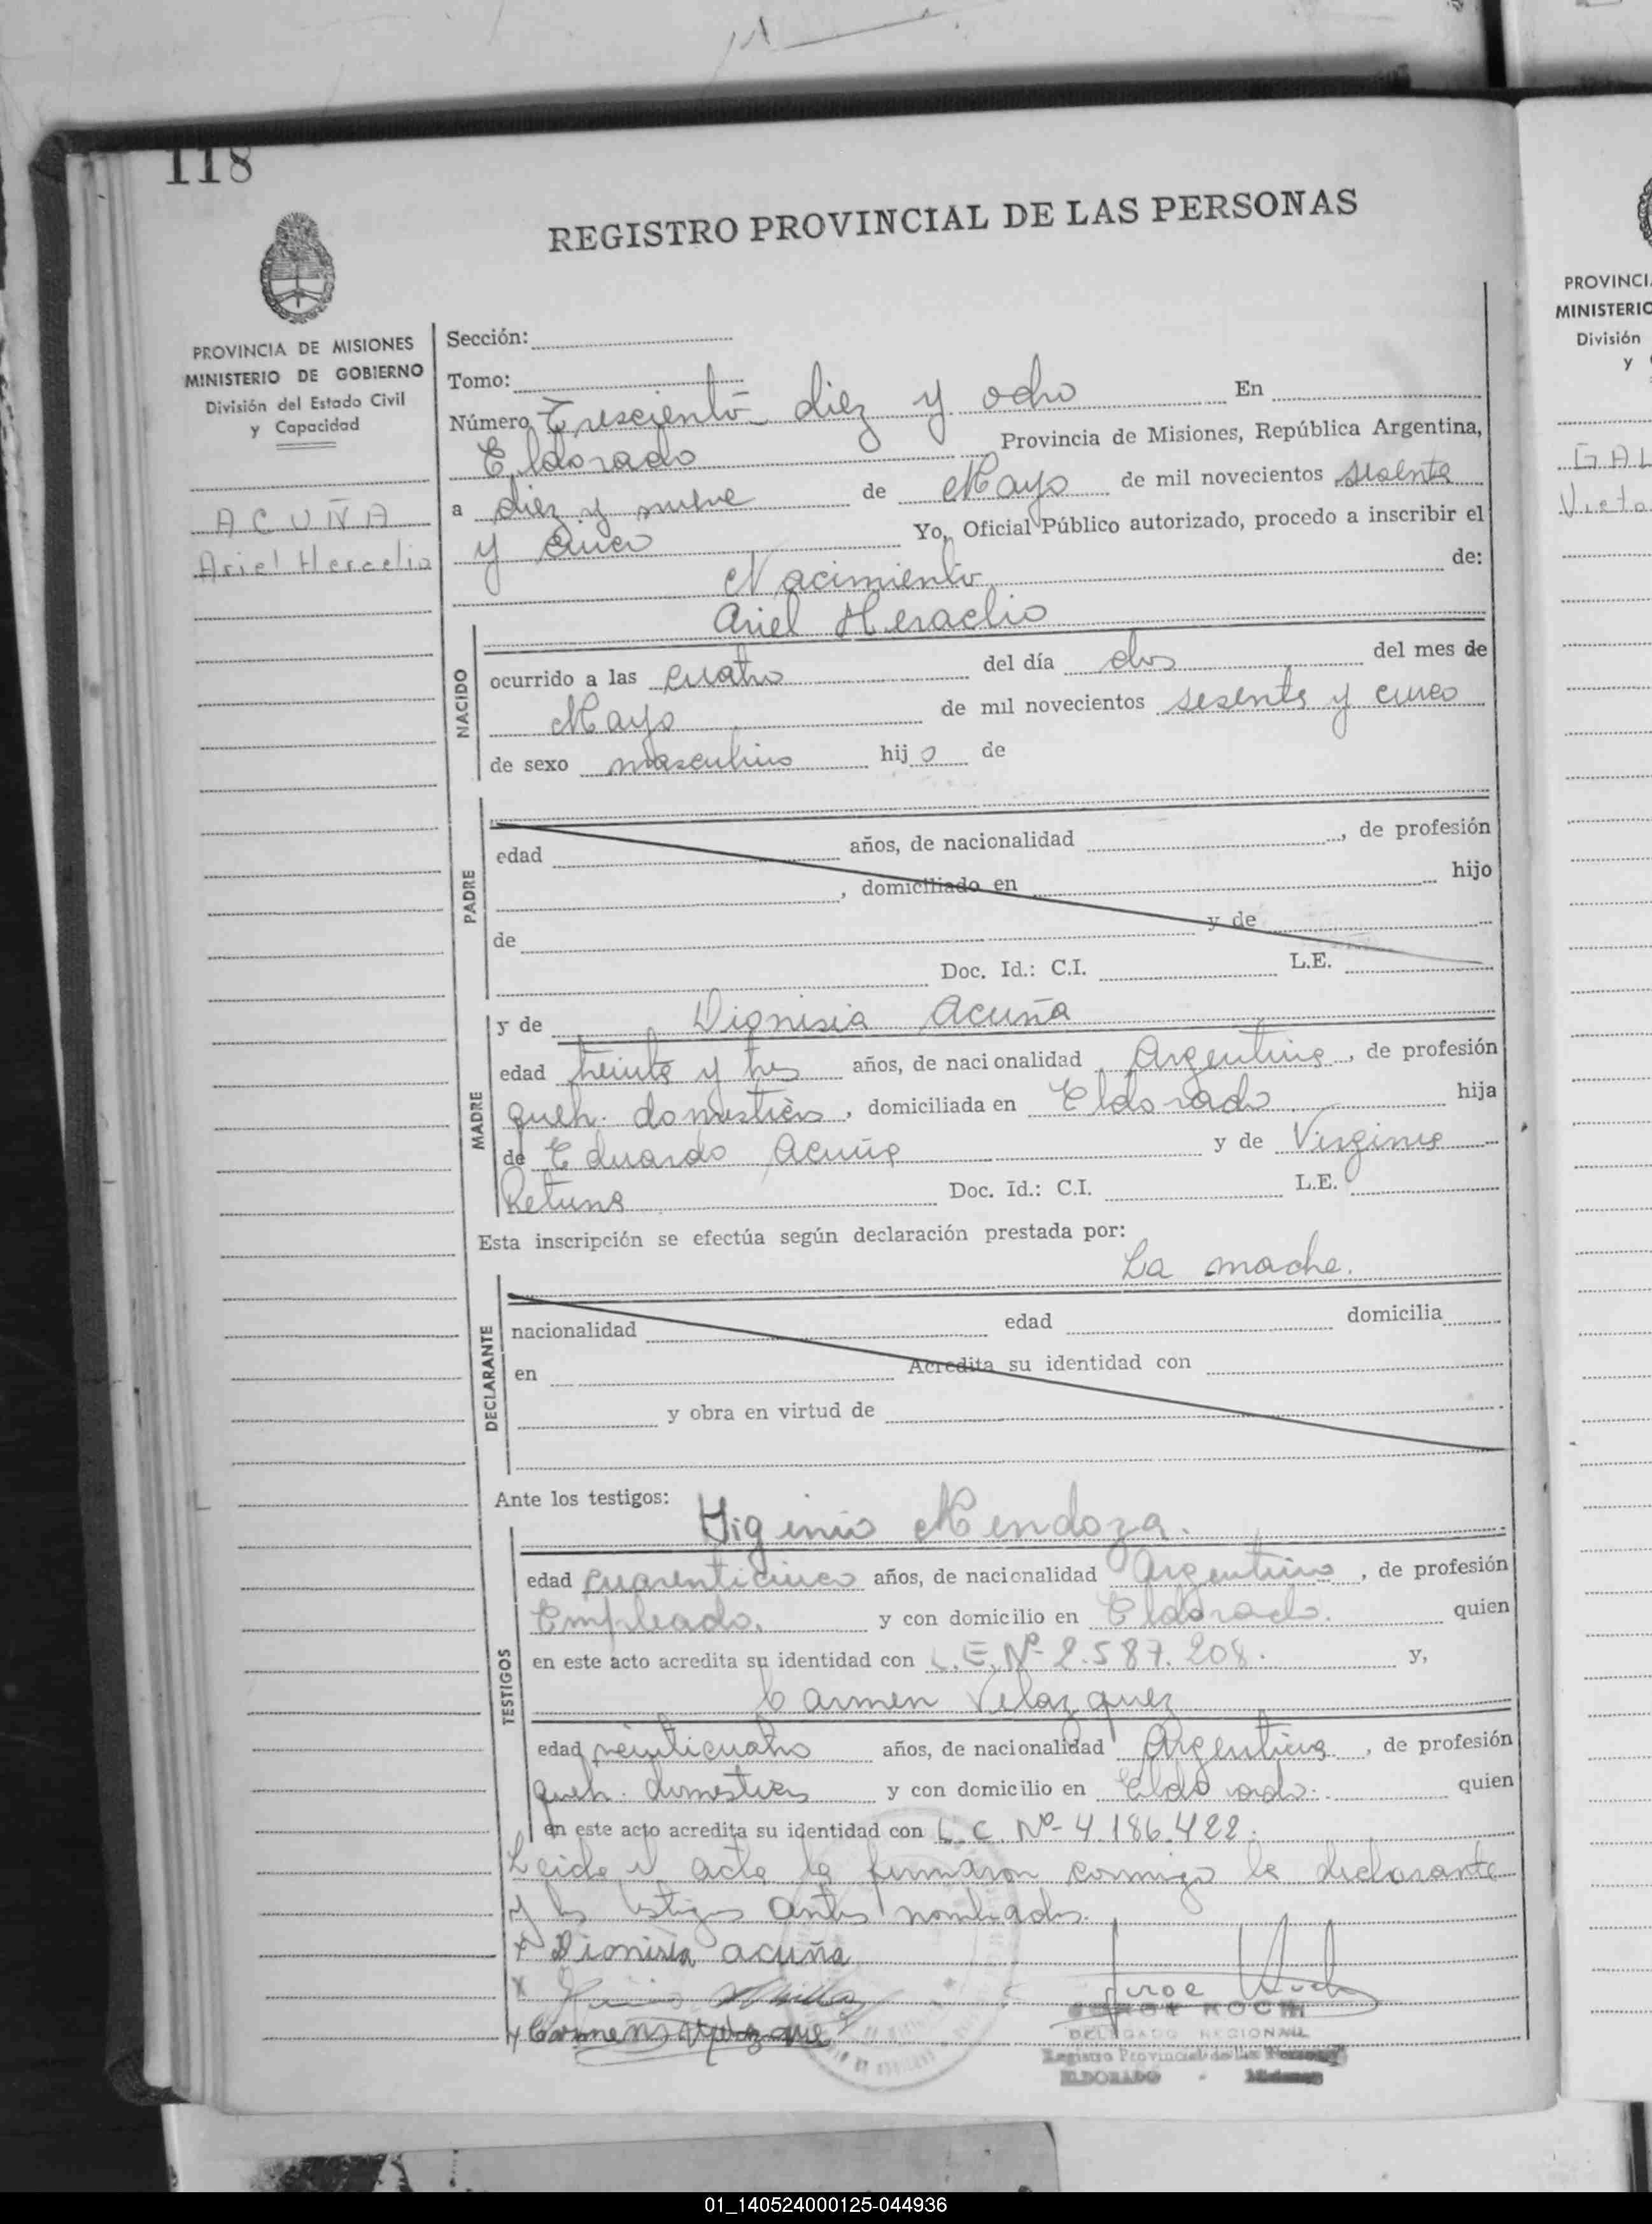 118
REGISTRO PROVINCIAL DE LAS PERSONAS
PROVINCIA DE MISIONES
MINISTERIO DE GOBIERNO
División del Estado Civil
y Capacidad
ACUÑA
Ariel Hercelio
Sección:
Tomo:
Número Tresciento diez y ocho En
Eldorado Provincia de Misiones, República Argentina,
a diez y nueve de Mayo de mil novecientos sesenta
y cinco Yo, Oficial Público autorizado, procedo a inscribir el
Nacimiento de:
Ariel Heraclio
NACIDO
ocurrido a las cuatro del día dos del mes de
Mayo de mil novecientos sesenta y cinco
de sexo masculino hijo de
PADRE
edad años, de nacionalidad , de profesión
, domiciliado en hijo
de y de
Doc. Id.: C.I. L.E.
MADRE
y de Dionisia Acuña
edad treinta y tres años, de nacionalidad Argentina, de profesión
queh. domesticos, domiciliada en Eldorado hija
de Eduardo Acuña y de Virginia
Retuna Doc. Id.: C.I. L.E.
Esta inscripción se efectúa según declaración prestada por:
La madre.
DECLARANTE
nacionalidad edad domicilia
en Acredita su identidad con
y obra en virtud de
Ante los testigos:
TESTIGOS
Higinio Mendoza.
edad cuarenticinco años, de nacionalidad Argentino, de profesión
Empleado. y con domicilio en Eldorado. quien
en este acto acredita su identidad con L.E. Nº 2.587.208. y,
Carmen Velazquez
edad veinticuatro años, de nacionalidad Argentina, de profesión
queh. domesticos y con domicilio en Eldorado. quien
en este acto acredita su identidad con L.C. Nº 4.186.422.
Leida el acta la firmaron conmigo la declarante
y los testigos antes nombrados.
x Dionisia acuña
x
x Carmen
JORGE KOCH
DELEGADO REGIONAL
Registro Provincial de las Personas
ELDORADO - Misiones
PROVINCI
MINISTERIO
División
y
GAL
Victo
01_140524000125-044936